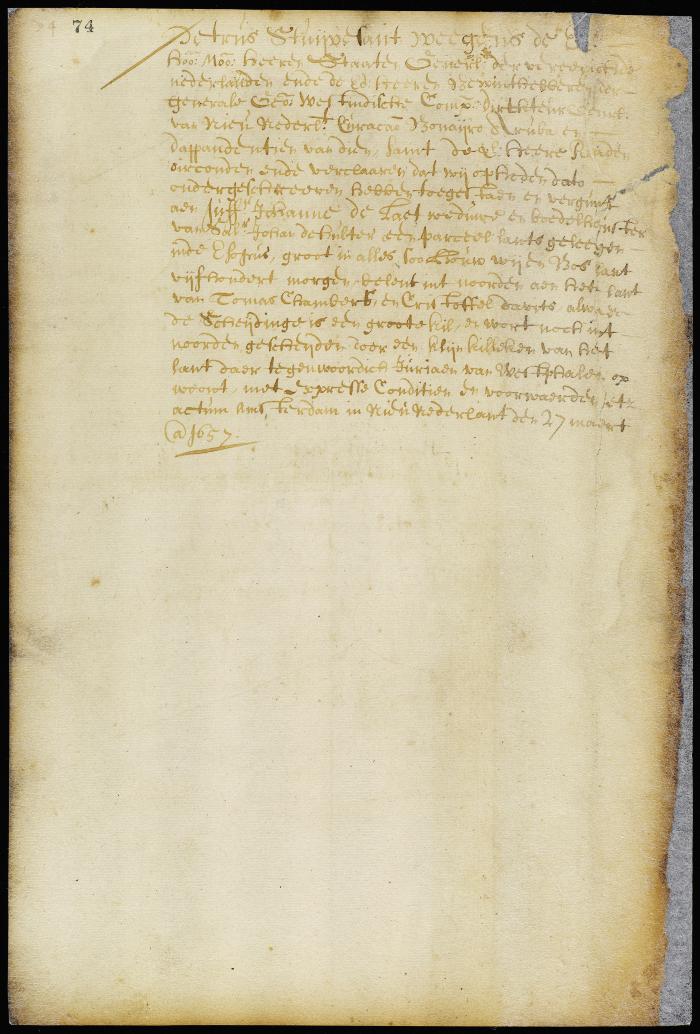 74
Petrus Stuijvesant weegens de E.
Hoo: Moo: Heeren Staaten Gener.l der vereenichde
nederlanden ende de Ed: Heeren Bewinthebberen der
generale Geo: Westindische Comp.e Directeur Gener.l
van Nieu Nederl.t Curacao Bonaijro Aruba en
dappandentien van dien, samt de E: Heere Raaden
oirconden ende verclaaren dat wij op heden dato
ondergeschreeven hebben toegestaen en vergunt
aen Juff.r Johanne de Laet weduwe en boedelhouster
van Sal.r Johan de hulter een parceel lants geleegen
inde Esopus, groot in alles, soo bouw wijen Bos lant
vijfhondert morgen, belent int noorden aen het lant
van Tomas Chambers, en Cristoffel davits, alwaer
de Scheijdinge is een groote kil, en wort noch int
noorden gescheijden door een klijn killeken van het
lant daer tegenwoordich Juriaen van Westphalen op
woont, met Expresse Conditien en voorwaerden, etz
actum Amsterdam in Nieu Nederlant den 27 maert
A.o 1657.